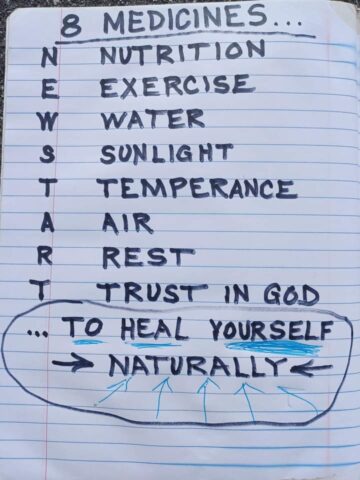 8 MEDICINES...
N NUTRITION
E EXERCISE
W WATER
S SUNLIGHT
T TEMPERANCE
A AIR
R REST
T TRUST IN GOD
... TO HEAL YOURSELF
→ NATURALLY ←